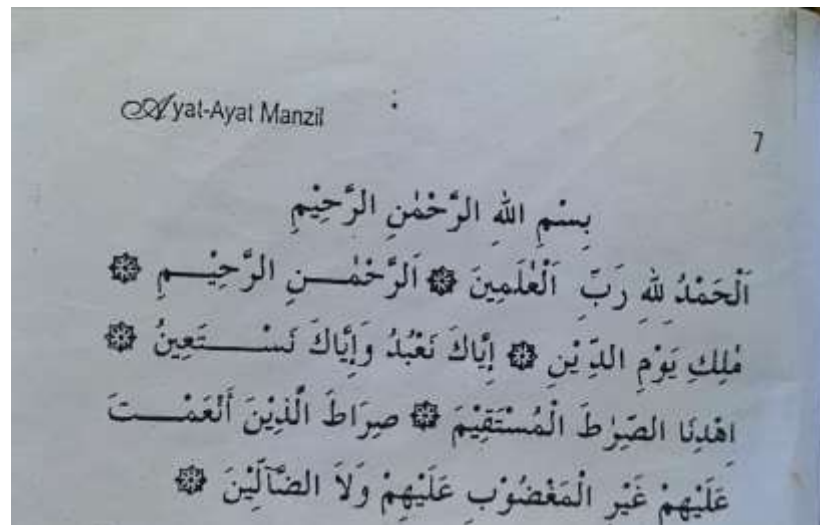 Ayat-Ayat Manzil
7
بِسْمِ اللهِ الرَّحْمٰنِ الرَّحِيْمِ
اَلْحَمْدُ لِلهِ رَبِّ اَلْعٰلَمِينَ ۞ اَلرَّحْمٰـــنِ الرَّحِيْـــمِ ۞
مٰلِكِ يَوْمِ الدِّيْنِ ۞ إِيَّاكَ نَعْبُدُ وَإِيَّاكَ نَسْـــتَعِينُ ۞
اِهْدِنَا الصِّرٰطَ الْمُسْتَقِيْمَ ۞ صِرَاطَ الَّذِيْنَ أَنْعَمْـــتَ
عَلَيْهِمْ غَيْرِ الْمَغْضُوْبِ عَلَيْهِمْ وَلاَ الضَّآلِّيْنَ ۞